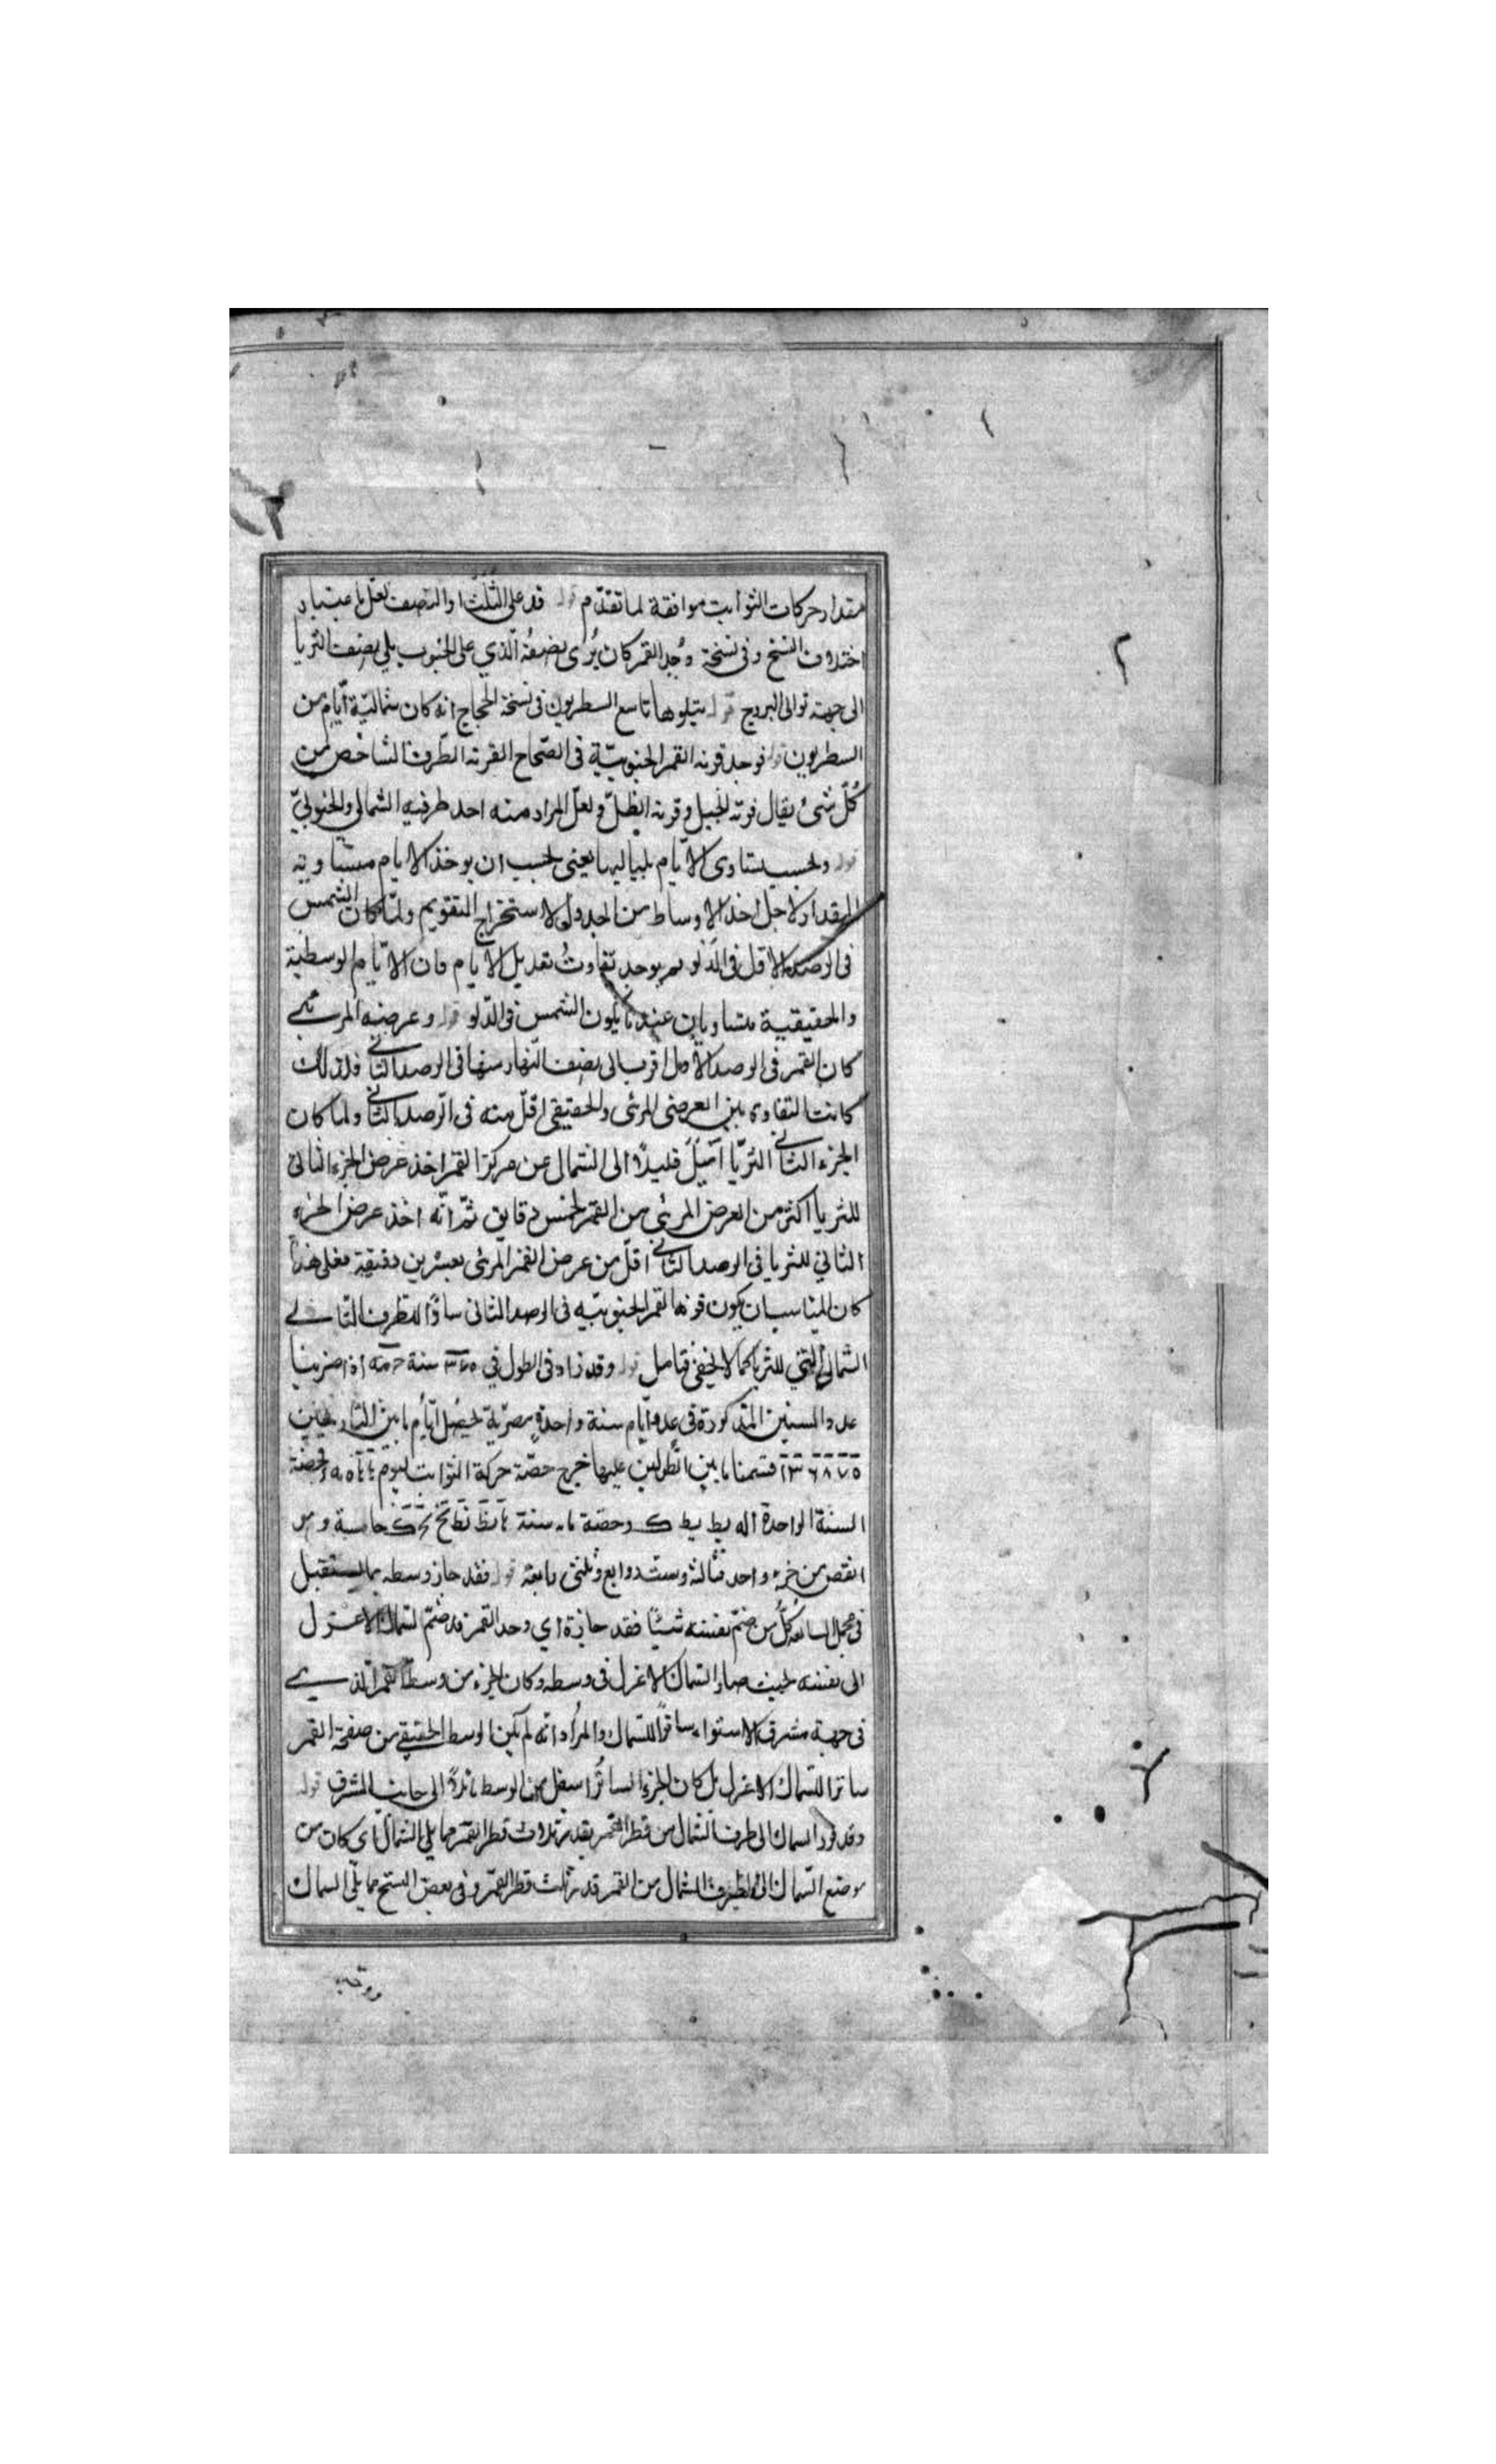 مقدار حركات الثوابت موافقة لما تقدّم قوله قد على الثلث او النصف لعل باعتبار
اختلاف النسخ وفى نسخة وُجد القمر كان يُرى نصفُه الّذي على الجنوب يلي نصف الثريا
الى جهة توالى البروج قوله يتلوها تاسع السطربون فى نسخة الحجاج انه كان ثمانية ايّام من
السطربون قوله فوجد قرنه القمر الجنوبيّة فى الصّحاح القرنة الطّرف الشاخص من
كُلّ شئ يقال قرنة الجبل وقرنة النّصل ولعلّ المراد منه احد طرفيه الشمالي والجنوبيّ
قوله وبحسب تساوى الايّام بلياليها يعنى بحسب ان يوخذ الايام متساوية
المقدار لاجل اخذ الاوساط من الجدول لاستخراج التقويم ولمّا كان الشمس
فى الرصد الاقل فى الدلو لم يوجد تفاوتُ تعديل الايام فان الايّام الوسطية
والحقيقية متساويان عند ما يكون الشمس فى الدّلو قوله وعرضه المرئى
كان القمر فى الرصد الاول اقرب الى نصف النّهار منها فى الرصد الثانى فلذلك
كانت التفاوت بين العرض المرئى والحقيقى اقلّ منه فى الرّصد الثانى ولما كان
الجزء الثانى الثريّا اَمْيَلَ قليلاً الى الشمالى عن مركز القمر اخذ عرض الجزء الثانى
للثريا اكثر من العرض المرئى من القمر لخمس دقايق ثمّ انّه اخذ عرض الجزء
الثاني للثريا فى الرصد الثانى اقلّ من عرض القمر المرئى بعشرين دقيقة فعلى هذا
كان المناسب ان يكون قرنه القمر الجنوبيّه فى الرصد الثانى ساترًا للطرف الثانى
الشمالى للثريا كما لا يخفى فتامل قوله وقد زاد فى الطول في ٣٧٥ سنة ح مه اذا ضربنا
عدد السنين المذكورة فى عدد ايّام سنة واحدةٍ مصريّة يحصل ايّام ما بين التاريخين
١٣٦٨٧٥ قسمنا ما بين الطولين عليها خرج حصّة حركة الثوابت ليوم وحصّة
السنة الواحدة وحصة سنة خامسة وهو
انقص من جزء واحد ثالثة وست روابع وثلثى رابعة قوله فقد حاز وسطه بالمستقبل
فى مجمل اللغة كُلُّ من ضمّ نفسه شيئًا فقد حازه اي وجد القمر قد ضمّ السّماك الاعزل
الى نفسه بحيث صار السّماك الاعزل فى وسطه وكان الجزء من وسط القمر الّذي
فى جهة مشرق الاستواء ساترًا للسّماك والمراد انّه لم يكن الوسط الحقيقى من صفحة القمر
ساترا للسّماك الاعزل بل كان الجزء السّاتر اسفل من الوسط مائلاً الى جانب المشرق قوله
وقد السماك الى طرف الشمال من قطر القمر بقدر ثلاث قطر القمر مما يلى الشمال اى كان من
موضع السّماك الى الطرف الشمال من القمر قدر ثلث قطر القمر وفى بعض النسخ مما يلى السماك